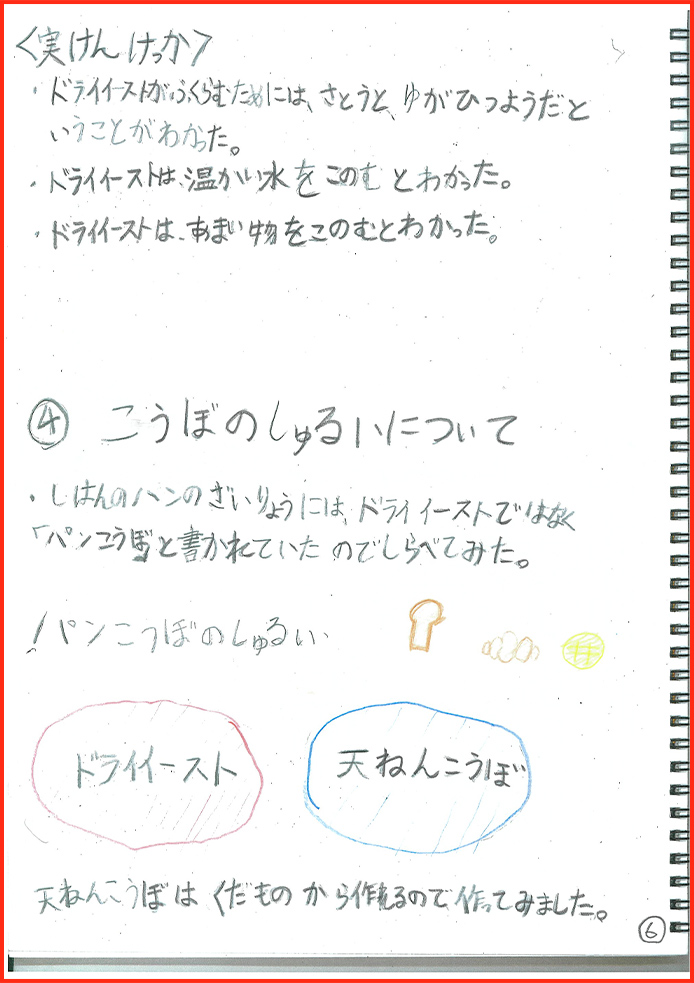 〈実けんけっか〉
・ドライイーストがふくらむためには、さとうと、ゆがひつようだと
いうことがわかった。
・ドライイーストは、温かい水をこのむとわかった。
・ドライイーストは、あまい物をこのむとわかった。
④ こうぼのしゅるいについて
・しはんのパンのざいりょうには、ドライイーストではなく
「パンこうぼ」と書かれていたのでしらべてみた。
！パンこうぼのしゅるい
ドライイースト
天ねんこうぼ
天ねんこうぼはくだものから作れるので作ってみました。
⑥